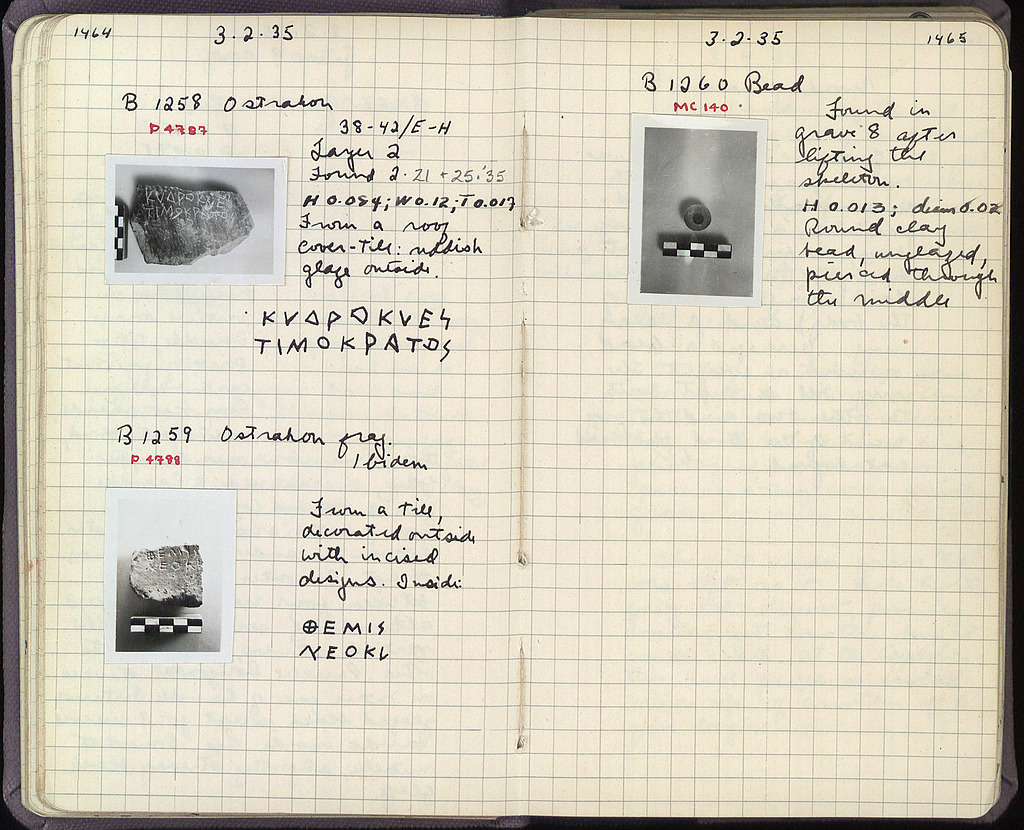 1464
3·2·35
B 1258 Ostrakon
P 4787
38-42/E-H
Layer 2
Found 2·21+25·'35
H 0.084; W 0.12; T 0.017
From a roof
cover-tile: reddish
glaze outside.
ΚVΔΡΟΚVΕS
ΤΙΜΟΚΡΑΤΟS
ΚVΔΡΟΚVΕ
ΤΙΜΟΚΡΑΤΟS
B 1259 Ostrakon frag.
P 4788
Ibidem
From a tile,
decorated outside
with incised
designs. Inside:
ΘΕΜΙS
ΝΕΟΚL
ΘΕΜΙS
ΝΕΟΚL
3·2·35
1465
B 1260 Bead
MC 140
Found in
grave 8 after
lifting the
skeleton.
H 0.013; diam 0.02
Round clay
bead, unglazed,
pierced through
the middle